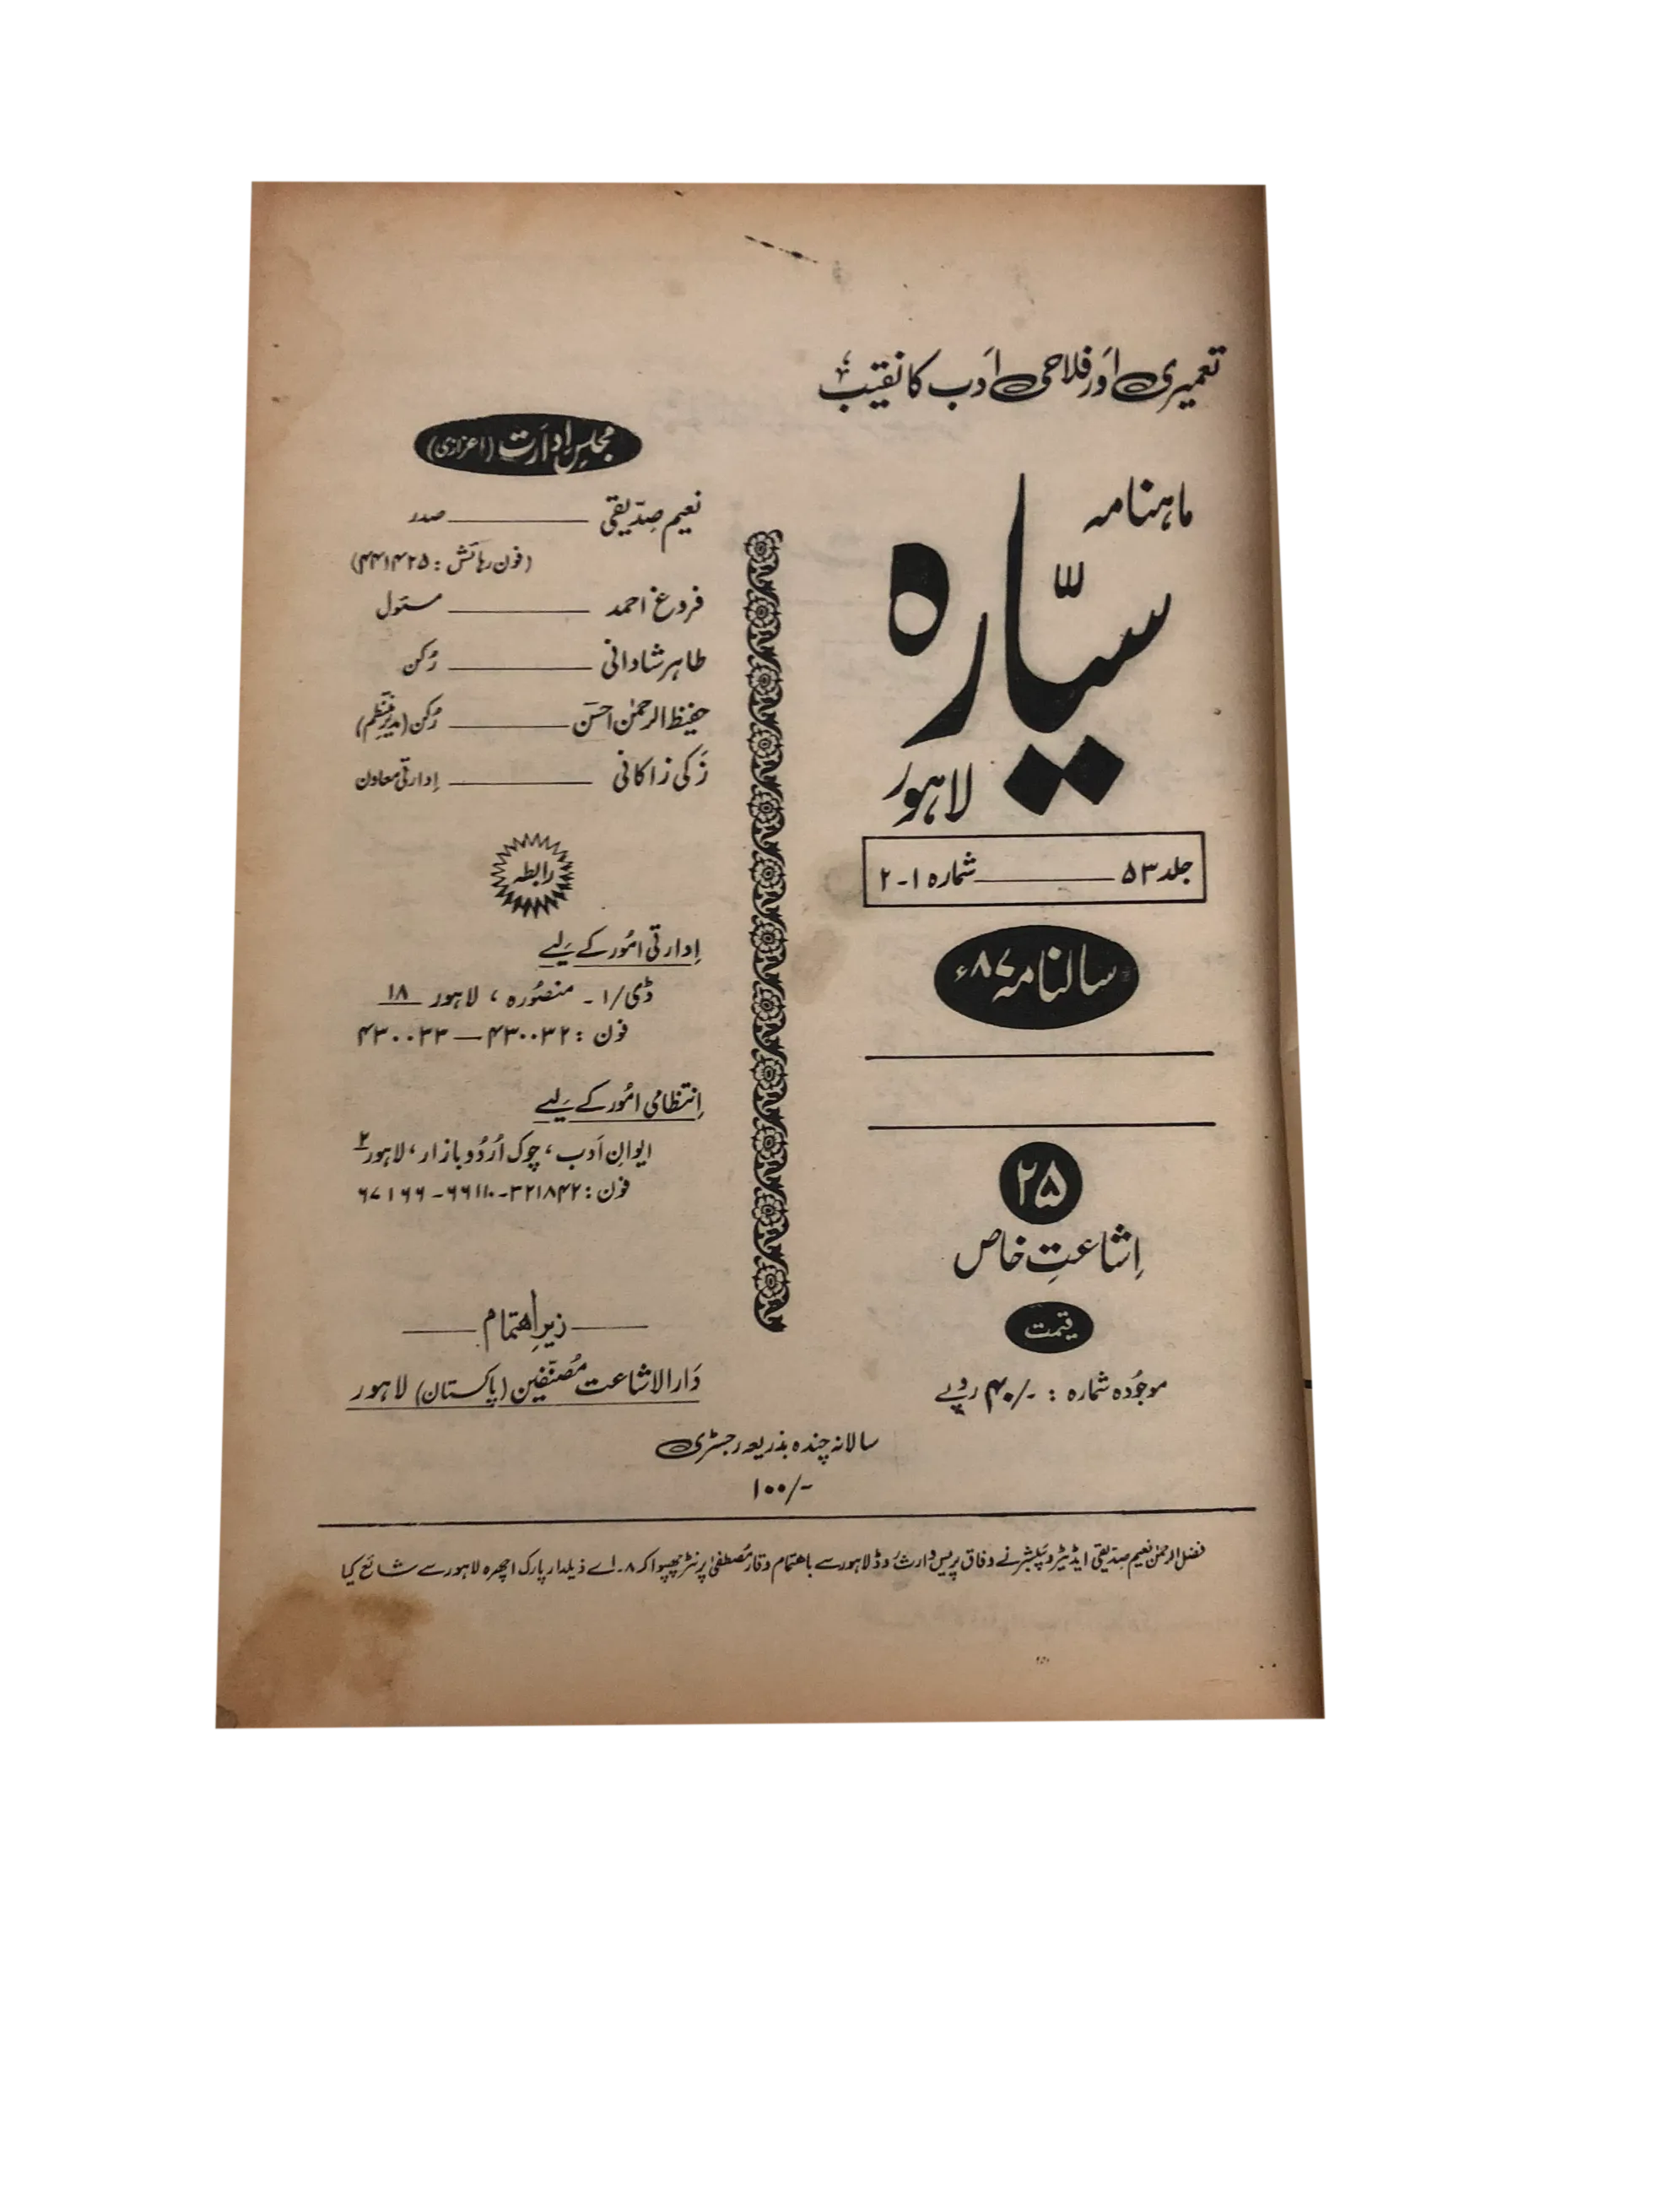 تعمیری اور فلاحی ادب کا نقیب
ماہنامہ
سیّارہ
لاہور
جلد ۵۳ ــــــ شمارہ ۱-۲
سالنامہ ۸۷ء
۲۵
اِشاعتِ خاص
قیمت
موجُودہ شمارہ : -/۴۰ روپے
مجلسِ اِدارَت (اعزازی)
نعیم صِدّیقی ــــــ صدر
(فون رہائش : ۴۴۱۴۲۵)
فروغ احمد ــــــ مسئول
طاہر شادانی ــــــ رُکن
حفیظ الرحمٰن احسن ــــــ رُکن (مدیرِ منتظم)
زَکی زاکانی ــــــ اِدارتی معاون
رابطہ
اِدارتی امُور کے لیے
ڈی/۱ ـ منصُورہ ، لاہور ۱۸
فون : ۴۳۰۰۳۲ — ۴۳۰۰۳۳
اِنتظامی امُور کے لیے
ایوانِ اَدب ، چوک اُردُو بازار ، لاہور ۲
فون : ۳۲۱۸۴۲ - ۶۶۱۱۰ - ۶۷۱۶۶
زیرِ اھتمام
دَارالاشاعت مُصنّفین (پاکستان) لاہور
سالانہ چندہ بذریعہ رجسٹری
-/۱۰۰
فضل الرحمٰن نعیم صدّیقی ایڈیٹر و پبلشر نے وفاق پریس وارث روڈ لاہور سے باھتمام وقار مُصطفٰی پرنٹر چھپوا کر ۸ ـ اے ذیلدار پارک اچھرہ لاہور سے شائع کیا